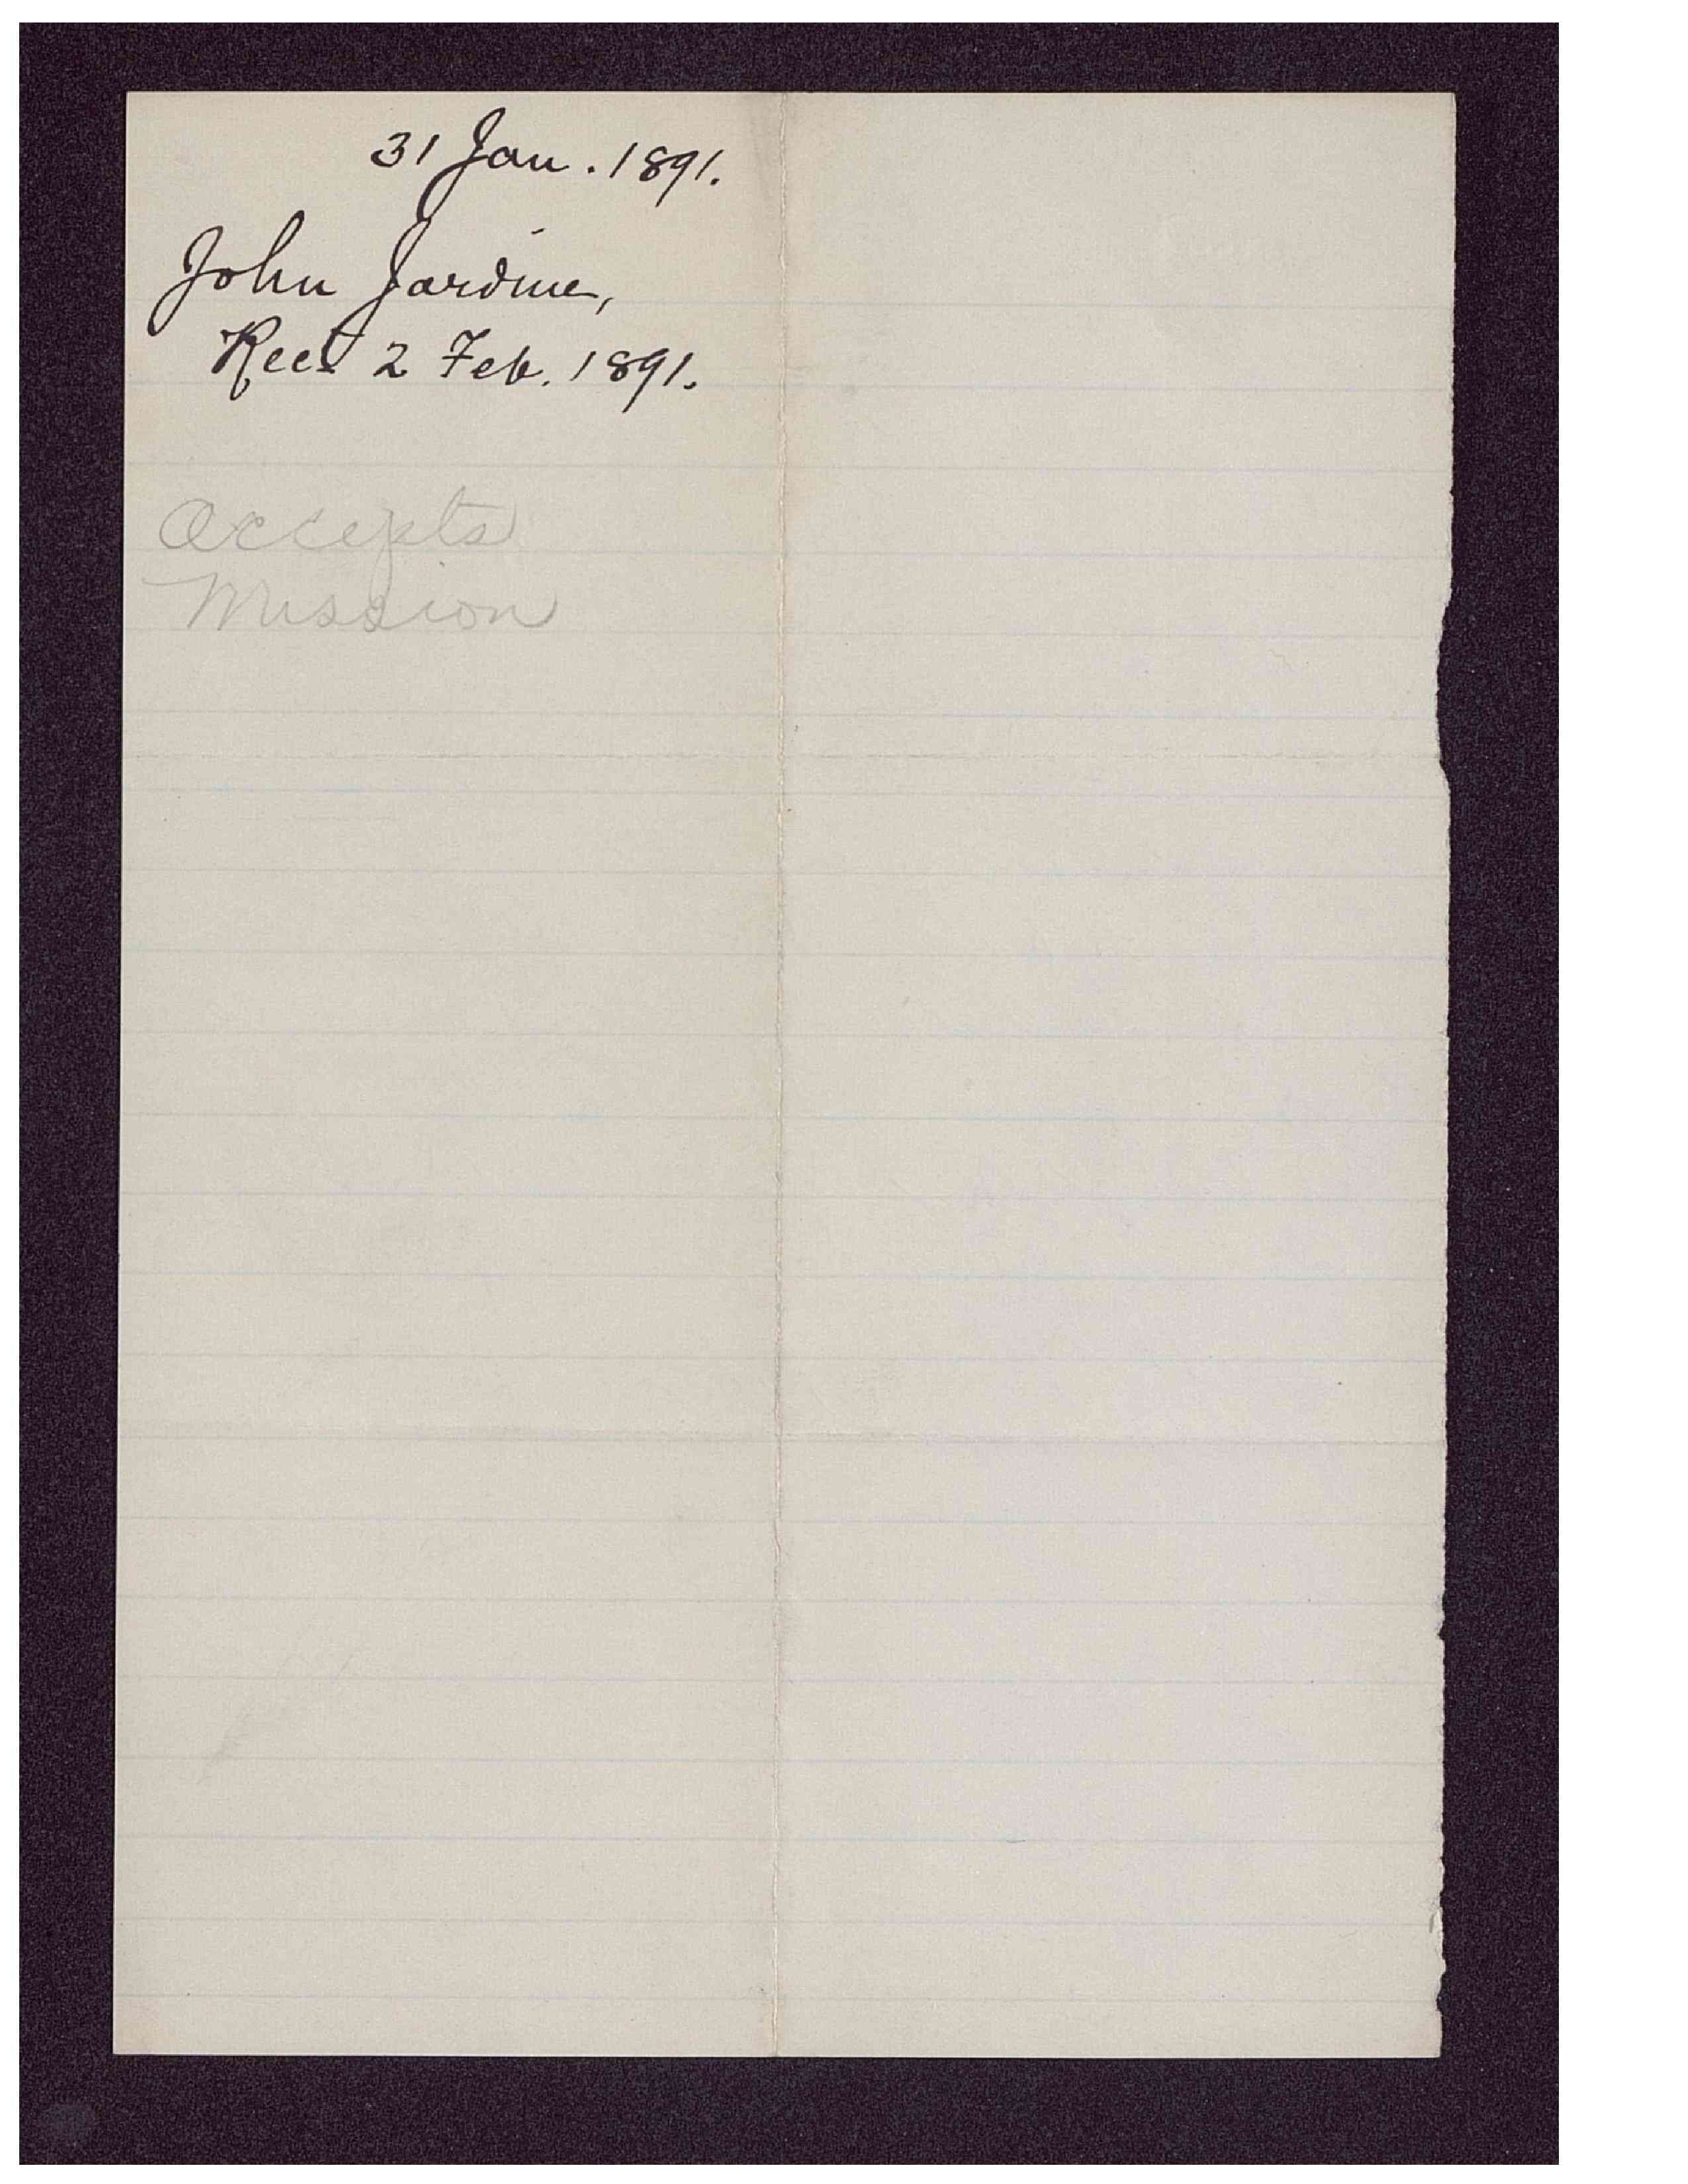 31 Jan. 1891.
John Jardine,
Recd 2 Feb. 1891.
Accepts
Mission